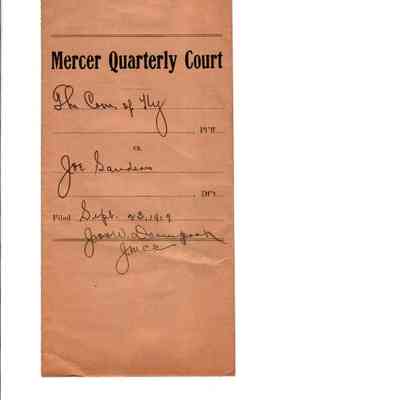 Mercer Quarterly Court
The Com of Ky
Pl'ff.
vs.
Joe Sanders
Df't.
Filed Sept. 23, 1919
JMCC